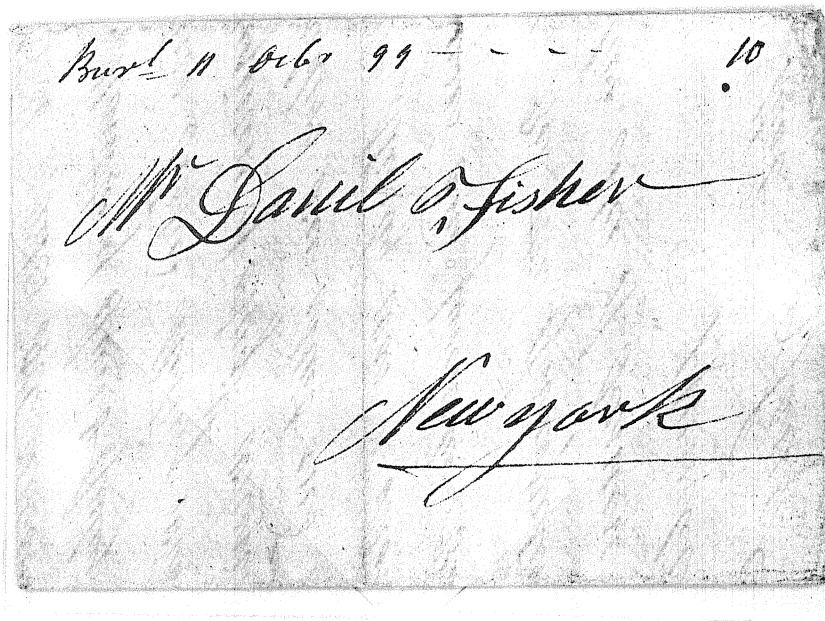 Burl 11 Octbr 99 - - - - 10
Mr Daniel T Fisher
Newyork